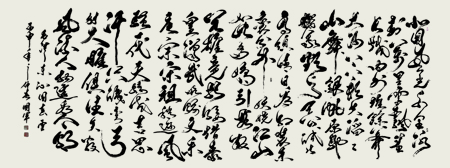 北国风光千里冰
封万里雪飘望
长城内外惟余莽
莽大河上下顿失滔滔
山舞银蛇原驰
蜡象欲与天公试比
高须晴日看红装素
裹分外妖娆江山
如此多娇引无数
英雄竞折腰惜秦
皇汉武略输文采
唐宗宋祖稍逊风
骚一代天骄成吉思
汗只识弯弓
射大雕俱往矣数
风流人物还看今朝